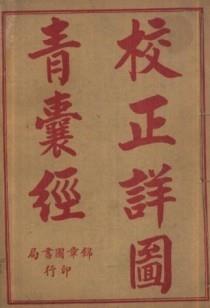 校正詳圖
青囊經
錦章圖書局
印行